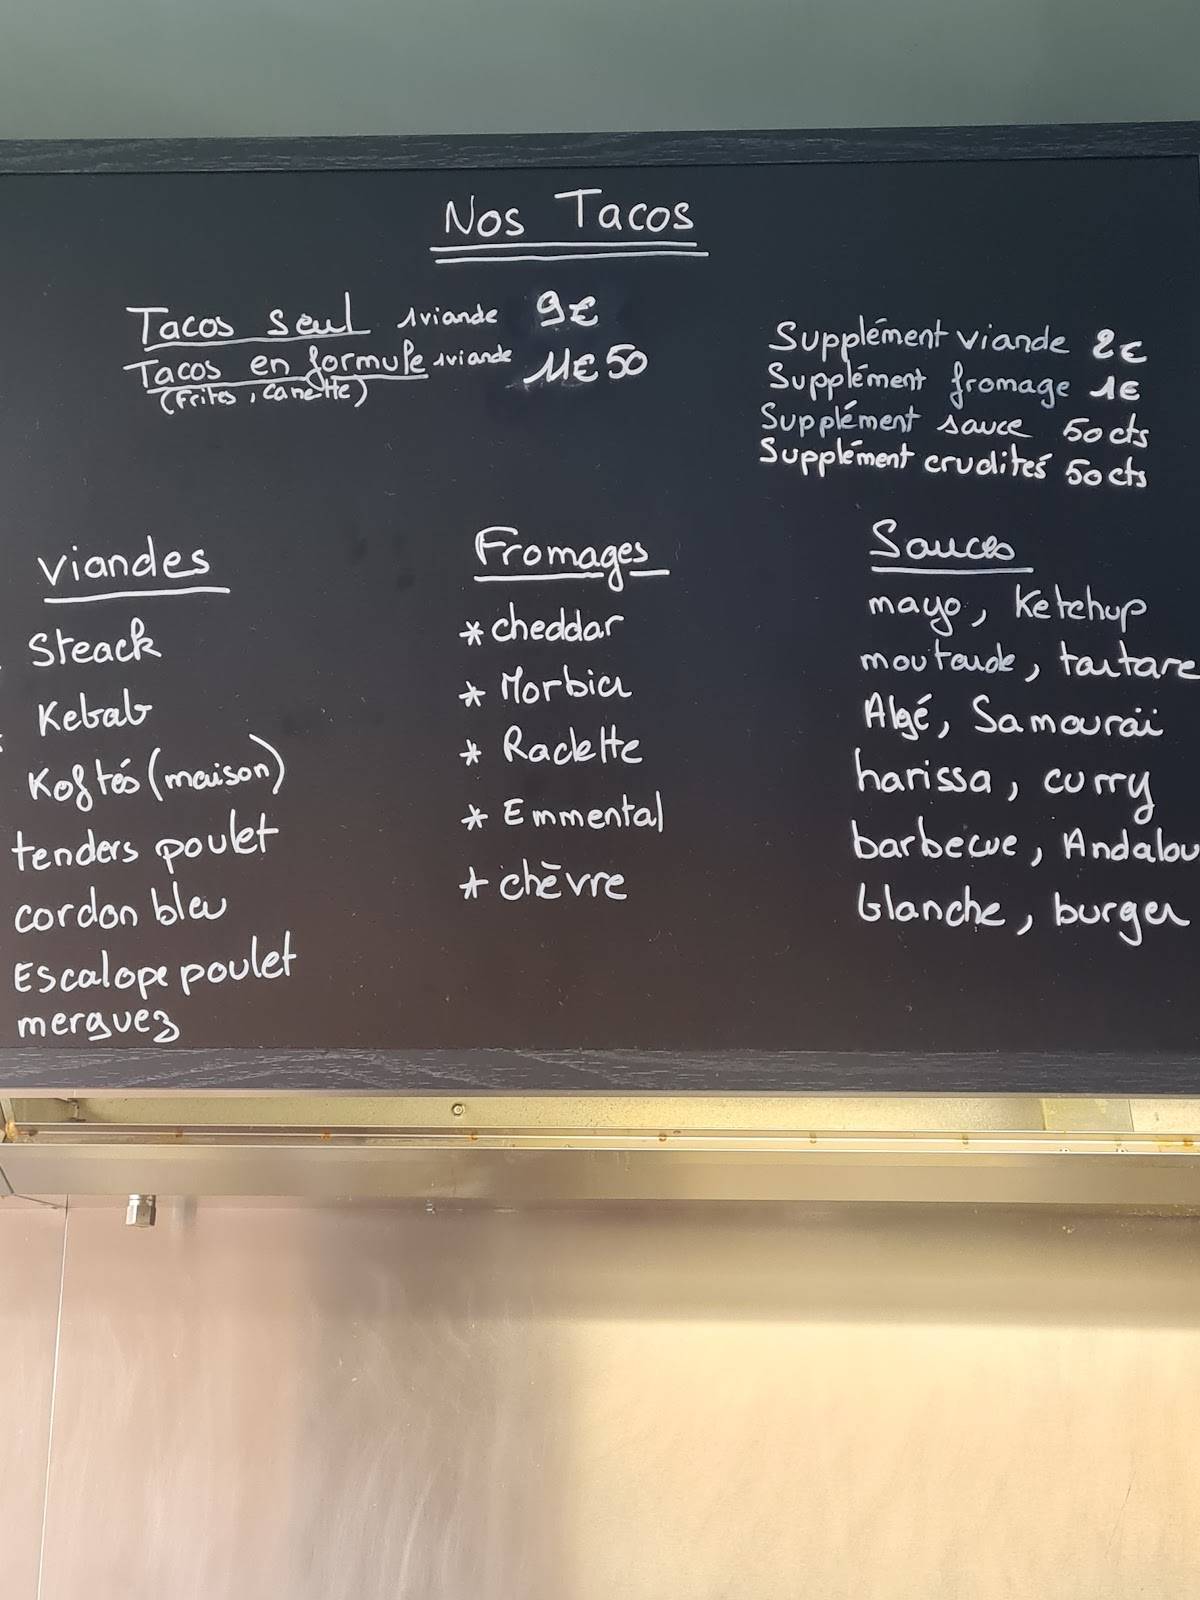 Nos Tacos
Tacos seul 1viande 9€
Tacos en formule 1viande 11€50
(Frites, canette)
Supplément viande 2€
Supplément fromage 1€
Supplément sauce 50cts
Supplément crudités 50cts
Viandes
Steack
Kebab
Koftés (maison)
tenders poulet
cordon bleu
Escalope poulet
merguez
Fromages
* cheddar
* Morbier
* Raclette
* Emmental
* chèvre
Sauces
mayo, Ketchup
moutarde, tartare
Algé, Samouraï
harissa, curry
barbecue, Andalou
blanche, burger